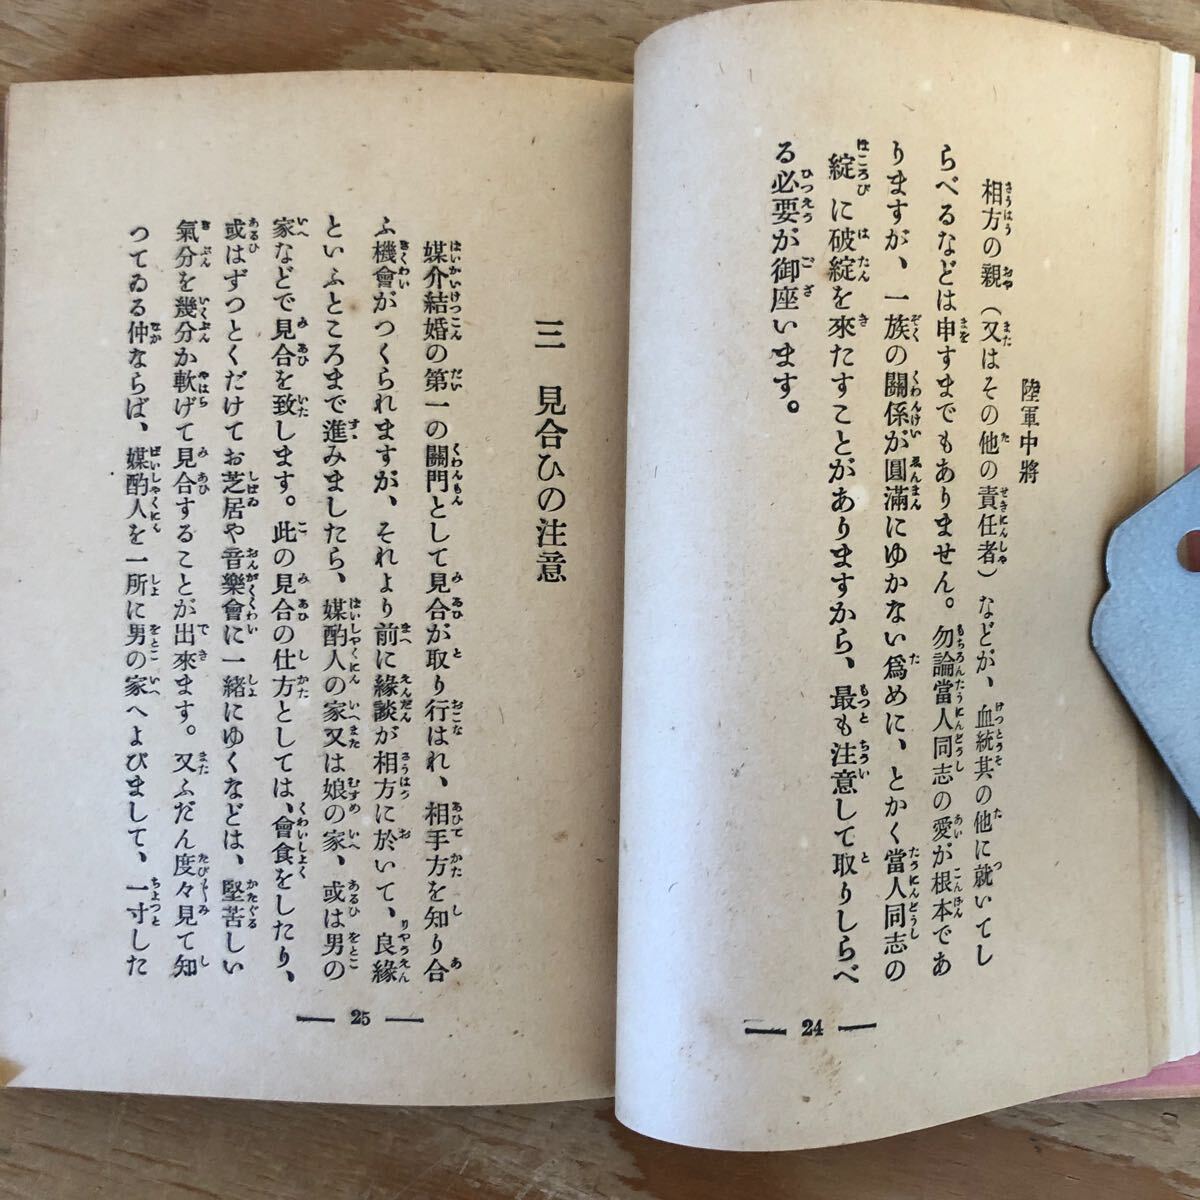 陸軍中將
相方の親（又はその他の責任者）などが、血統其の他に就いてし
らべるなどは申すまでもありません。勿論當人同志の愛が根本であ
りますが、一族の關係が圓滿にゆかない爲めに、とかく當人同志の
綻に破綻を來たすことがありますから、最も注意して取りしらべ
る必要が御座います。
— 24 —
三 見合ひの注意
媒介結婚の第一の關門として見合が取り行はれ、相手方を知り合
ふ機會がつくられますが、それより前に緣談が相方に於いて、良緣
といふところまで進みましたら、媒酌人の家又は娘の家、或は男の
家などで見合を致します。此の見合の仕方としては、會食をしたり、
或はずつとくだけてお芝居や音樂會に一緒にゆくなどは、堅苦しい
氣分を幾分か軟げて見合することが出來ます。又ふだん度々見て知
つてゐる仲ならば、媒酌人を一所に男の家へよびまして、一寸した
— 25 —